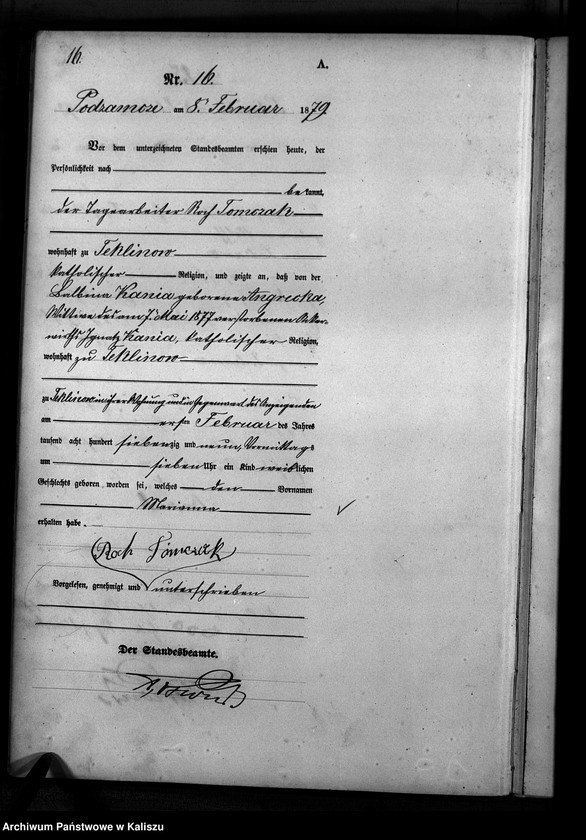 16.
A.
Nr. 16.
Podzamcze am 8t Februar 1879
Vor dem unterzeichneten Standesbeamten erschien heute, der
Persönlichkeit nach
bekannt,
der Tagearbeiter Roch Tomczak
wohnhaft zu Teklinow
katholischer Religion, und zeigte an, daß von der
Balbina Kania geborene
Wittwe des am 7t Mai 1877 verstorbenen Acker-
wirths Ignatz Kania, katholischer Religion,
wohnhaft zu Teklinow
zu Teklinow in ihrer Wohnung und in Gegenwart des Anzeigenden
am ersten Februar des Jahres
tausend acht hundert siebenzig und neun, Vormittags
um sieben Uhr ein Kind weiblichen
Geschlechts geboren worden sei, welches den Vornamen
Marianna
erhalten habe.
Roch Tomczak
Vorgelesen, genehmigt und unterschrieben
Der Standesbeamte.
Archiwum Państwowe w Kaliszu